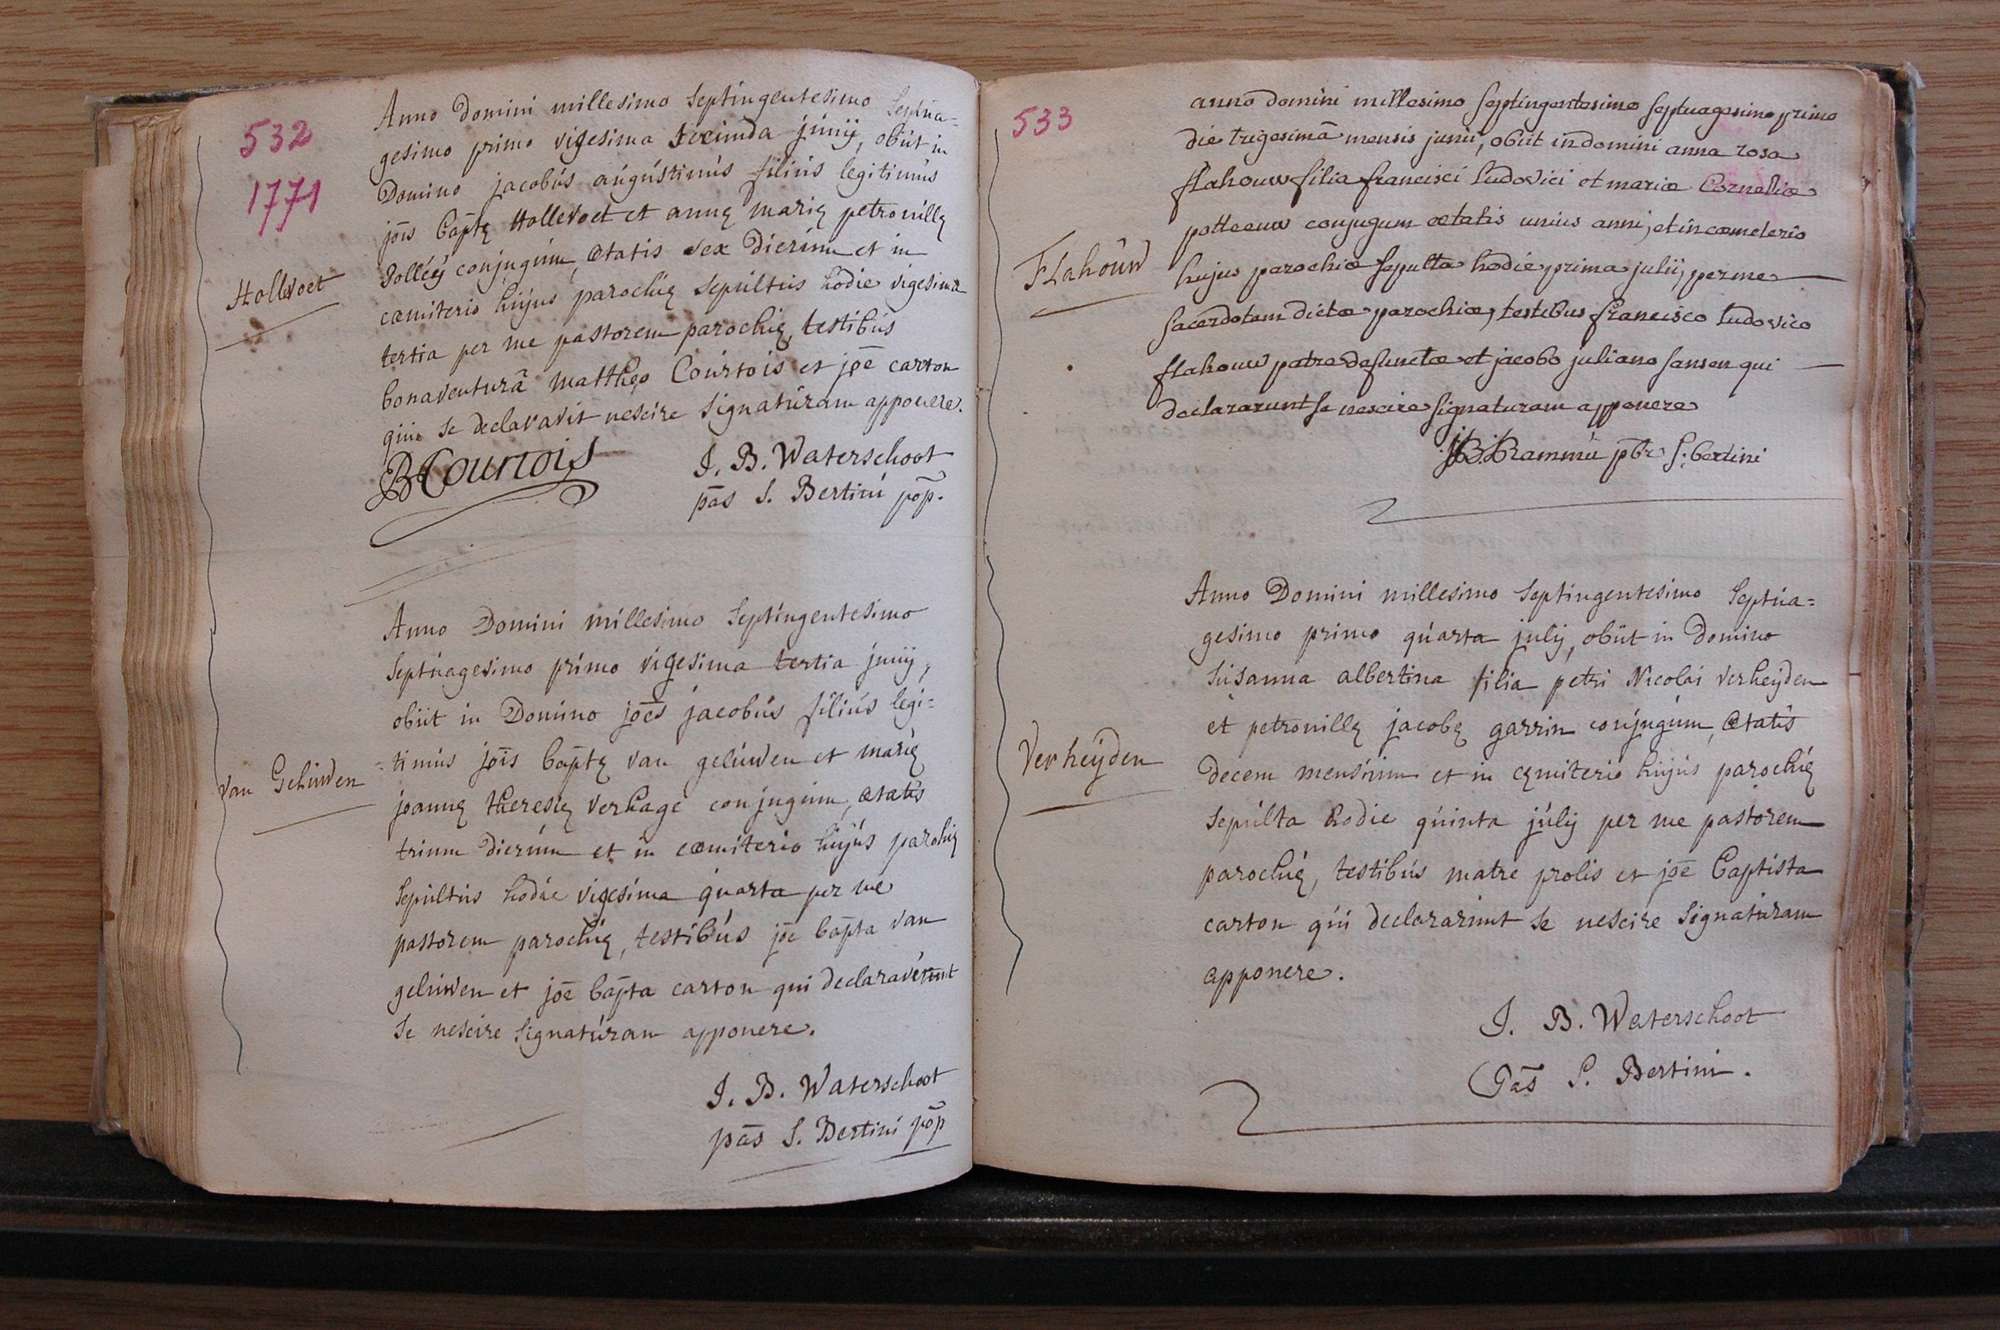 532
1771
Hollevoet
Anno Domini millesimo septingentesimo septua=
gesimo primo vigesima secunda junij, obiit in
Domino jacobús aúgústinús filiús legitimús
jōis bāptę Hollevoet et annę marię petronillę
conjugúm, ætatis sex dierúm et in
cæmiterio hújús parochię sepúltús hodie vigesima
tertia per me pastorem parochię, testibús
bonaventurâ matthęo Coúrtois et jōe carton
qúi se declaravit nescire signatúram apponere.
B Courtois
J. B. Waterschoot
pās S. Bertini pōp.
van Gelúwen
Anno Domini millesimo septingentesimo
septúagesimo primo vigesima tertia junij,
obiit in Domino joēs jacobús filiús legi=
timús jōis bāptę van gelúwen et marię
joannę theresię verhage conjugúm, ætatis
triúm dierúm et in cæmiterio hújús parohię
sepúltús hodie vigesima qúarta per me
pastorem parochię, testibús jōe bāpta van
gelúwen et jōe bāpta carton qui declaravérunt
se nescire signatúram apponere.
J. B. Waterschoot
pās S. Bertini pōp
533
Flahoúw
anno domini millesimo septingentesimo septuagesimo primo
die trigesimâ mensis junii, obiit in domini anna rosa
flahouw filia francisci ludovici et mariæ Corneliæ
potteeuw conjugum ætatis unius anni, et in cæmeterio
hujus parochiæ sepulta hodie prima julii, per me
sacerdotem dictæ parochiæ, testibus francisco ludovico
flahouw patre defunctæ et jacobo juliano sansen qui
declararunt se nescire signaturam apponere
pbr S: bertini
Verheÿden
Anno Domini millesimo septingentesimo septúa=
gesimo primo qúarta julij, obiit in Domino
súsanna albertina filia petri Nicolai verheÿden
et petronillę jacobę garrin conjugúm, ætatis
decem mensiúm et in cęmiterio hújús parochię
sepúlta hodie qúinta júlij per me pastorem
parochię, testibús matre prolis et jōe baptista
carton qúi declararúnt se nescire signatúram
apponere.
J. B. Waterschoot
Pās S. Bertini.